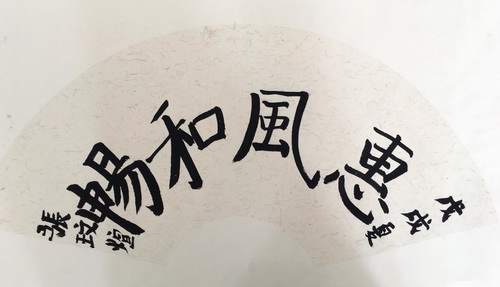 戊戌夏
惠風和暢
張玟煊